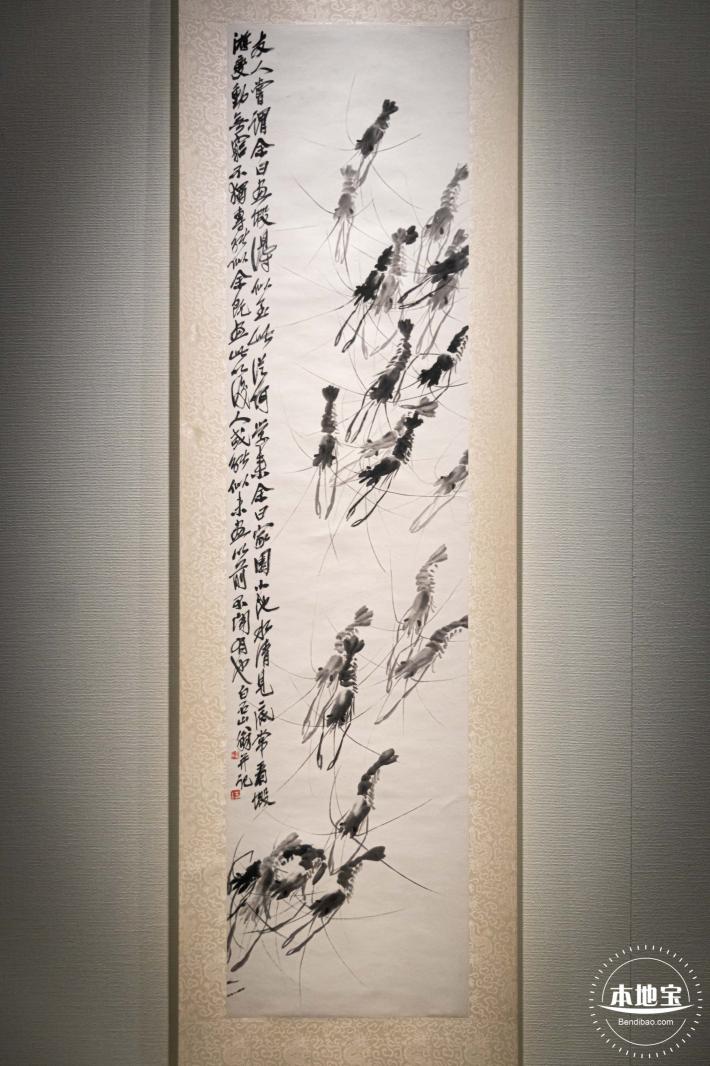 友人嘗謂余曰畫蝦得似至此從何學來余曰家園小池水清見底常看蝦
游變動無窮不獨專能似余既畫此以後人或能似未畫以前不聞有也白石山翁并記
本地宝
Bendibao.com